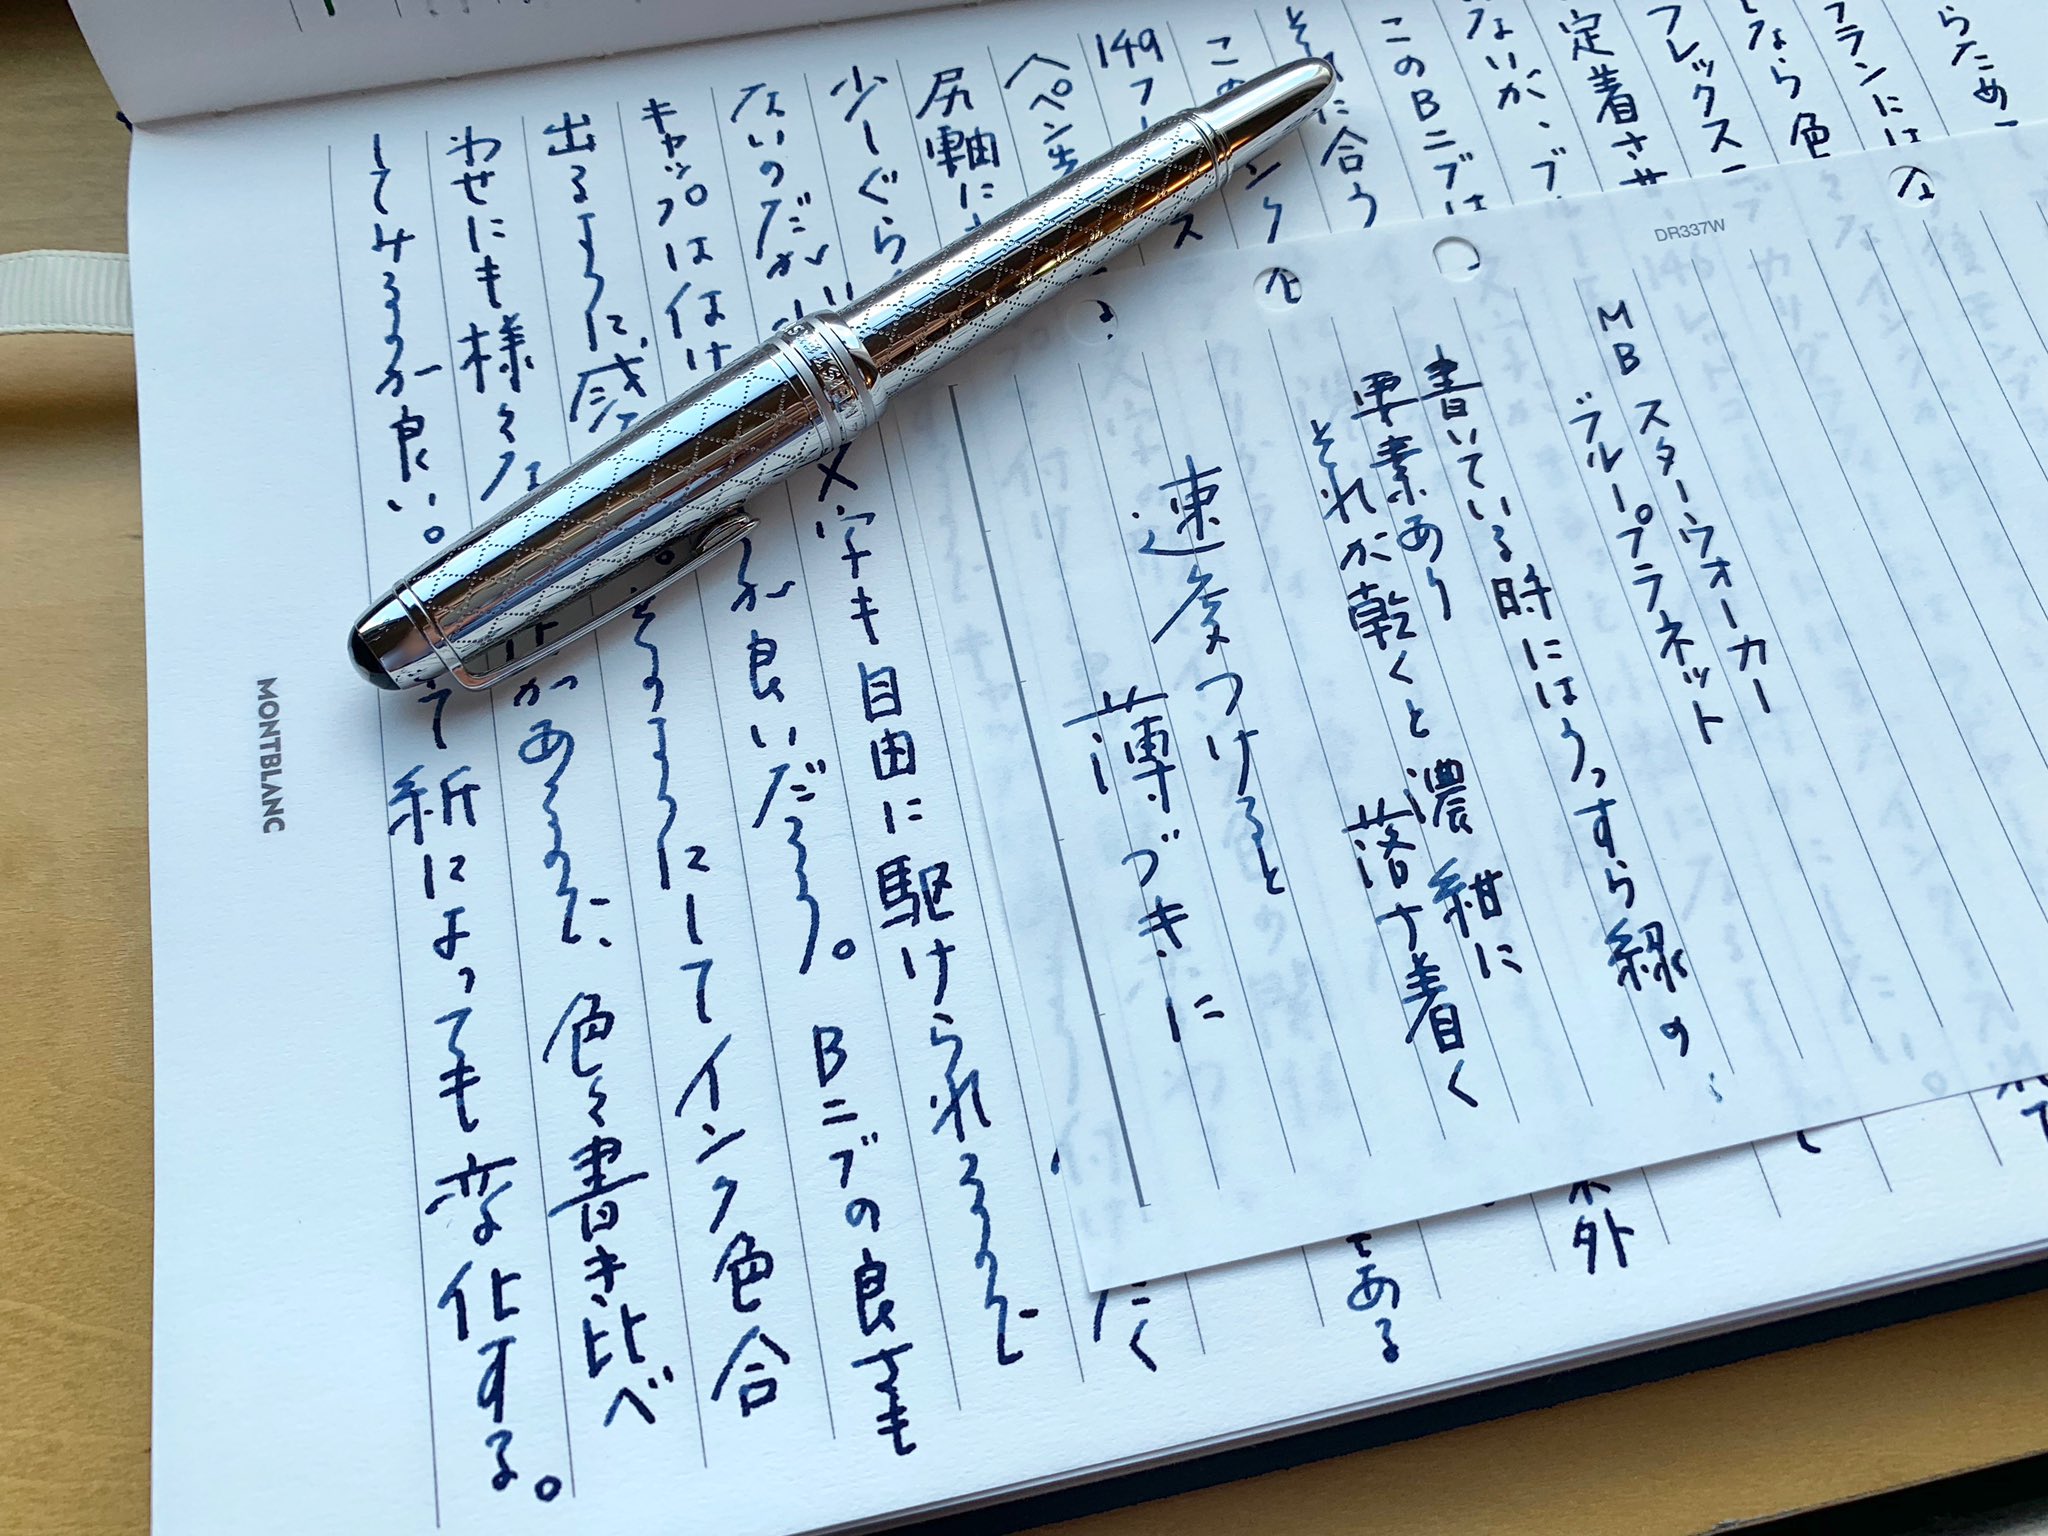 らためー
フランには
なら色
フレックスニ
定着させ
ないが、ブ
このBニブは
に合う
149フ
ペン先
尻軸に
少しぐら
ないのだが
キャップは付け
出るように感
わせにも様々な
してみるのが良い。
木外
である
だく
文字も自由に駆けられるので
が良いだろう。Bニブの良さも
そのようにしてインク色合
があるので、色々書き比べ
て紙によっても変化する。
MONTBLANC
DR337W
MB スターウォーカー
ブループラネット
書いている時にはうっすら緑の
要素あり
それが乾くと濃紺に
落ち着く
速度つけると
薄づきに